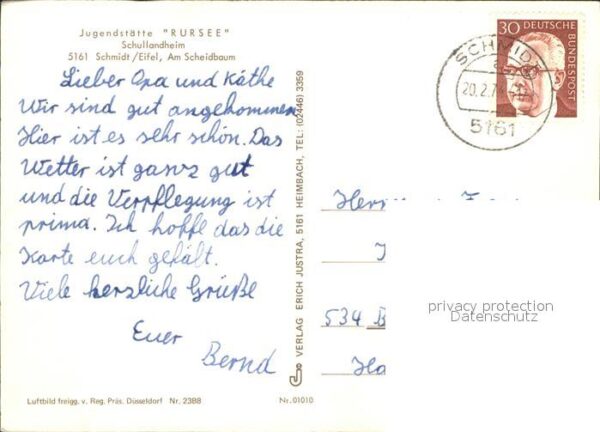 Jugendstätte "RURSEE"
Schullandheim
5161 Schmidt/Eifel, Am Scheidbaum
Lieber Opa und Käthe
Wir sind gut angekommen
Hier ist es sehr schön. Das
Wetter ist ganz gut
und die Verpflegung ist
prima. Ich hoffe das die
Karte euch gefält.
Viele herzliche Grüße
Euer
Bernd
Luftbild freigg. v. Reg. Präs. Düsseldorf Nr. 23BB
Nr. 01010
VERLAG ERICH JUSTRA, 5161 HEIMBACH, TEL: (02446) 3359
30 DEUTSCHE
BUNDESPOST
SCHMIDT
20.2.7
5161
534 B
privacy protection
Datenschutz